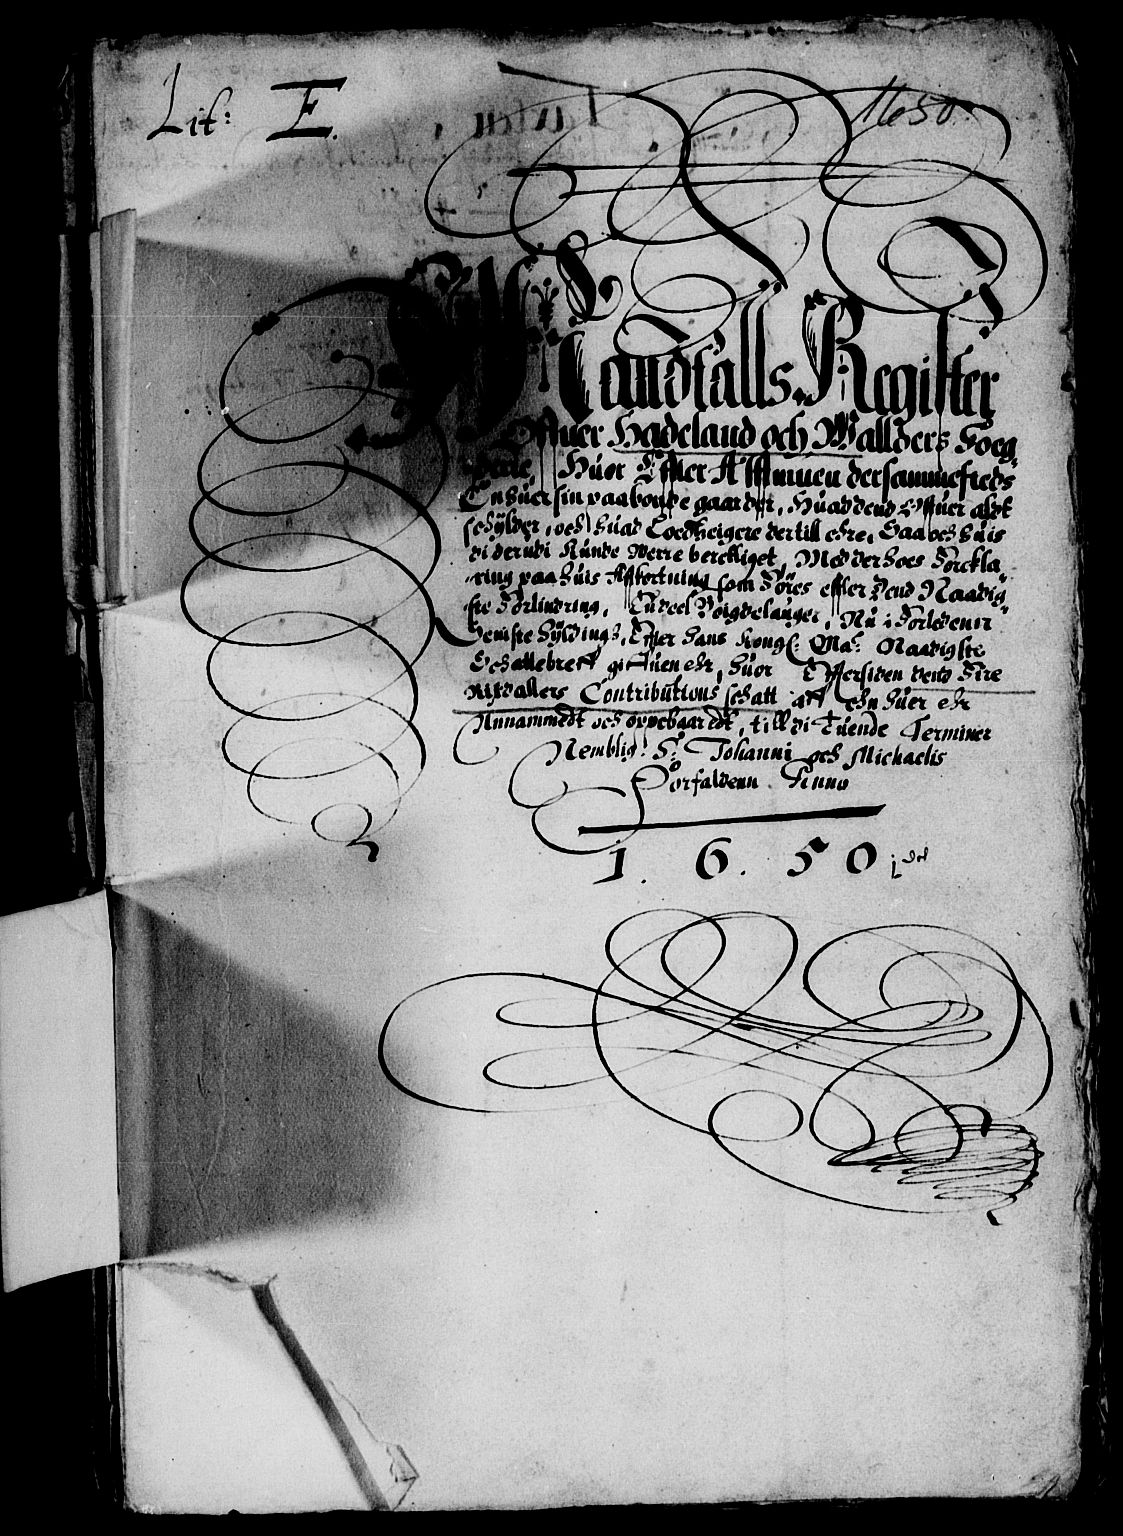 Lit: E.
1650.
Mandtalls Register
Offuer Hadeland och Walders Foeg-
derie, Huor Effter Allmuen dersammesteds
En huer sin paaboende gaarder, Huad dend Offuer aldt
schÿlder, och huad Loedtzeigere dertill ehre, Saa och huis
di derudi Kunde Werre berettiget, Med der hoes Forckla-
ring paa huis Affkortning som Föres effter dend Naadig-
ste Forlindring,
hemste hÿldings, Effter hans Kongl: Ma: Naadigste
Schattebreff giffuen ehr, huor Effter siden dend Fire
Rixdallers Contributions schatt aff ehn huer ehr
Annammedt och oppebaaredt, till di Tuende Terminer
Nemblig: S: Johanni och Michaelis
Forfaldenn Anno
1650